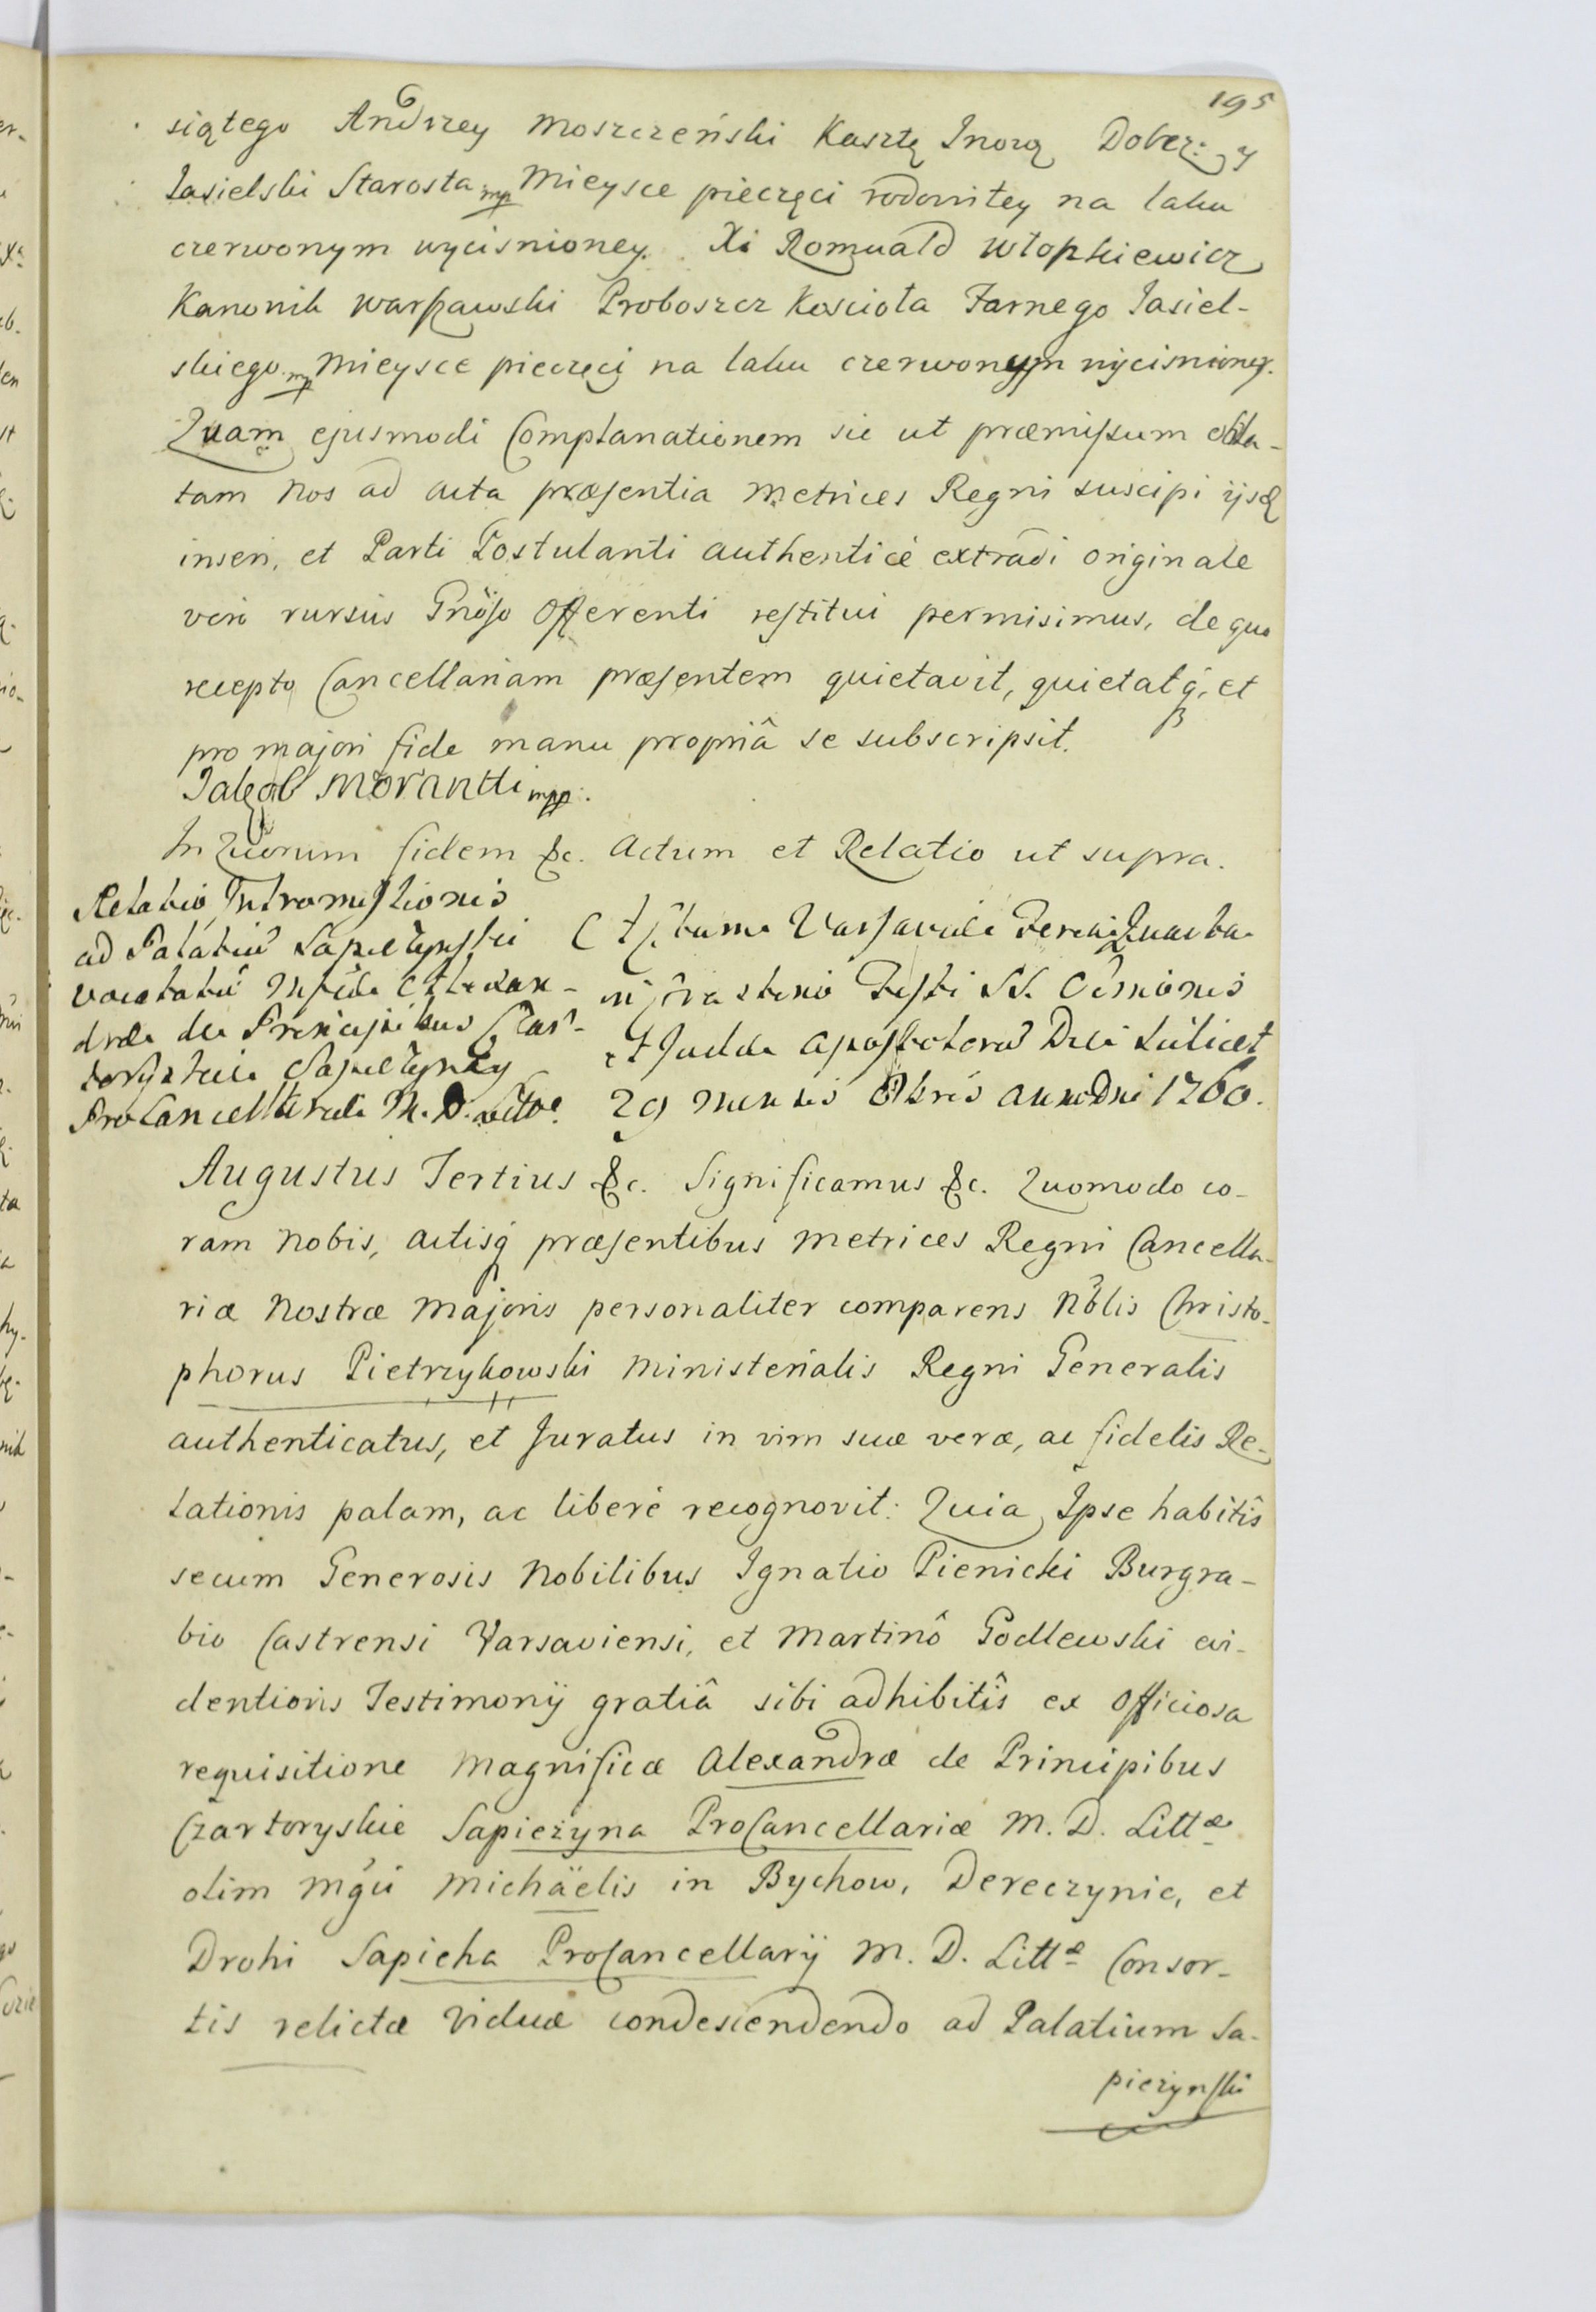 195
siątego Andrzey Moszczeński Kasztę Inorą Doberz: y
Jasielski Starosta mp Mieysce pieczęci rodowitey na laku
czerwonym wycisnioney. Xi Romuald Wlopkiewicz
Kanonik Warszawski Proboszcz Kosciola Farnego Jasiel-
skiego mp Mieysce pieczęci na laku czerwonym wycisnioney.
Quam ejusmodi Complanationem sic ut præmissum obla-
tam Nos ad Acta præsentia Metrices Regni suscipi ijsq
inseri, et Parti Postulanti authenticè extradi originale
verò rursùs Gnöso Offerenti restitui permisimus, de quo
recepto Cancellariam præsentem quietavit, quietatq́, et
pro majori fide manu propriâ se subscripsit.
Jakob Morantti mpp.
In Quorum fidem &c. Actum et Relatio ut supra.
Relatio Intromissionis
ad Palatiũ Sapieżynski
vocatatũ Mficæ Alexan-
dræ de Principibus Czar-
toryskie Sapieżyny
ProCancellariæ M. D. Littæ.
Actum Varsaviæ Feria Quarta
in Crastino Festi SS. Simonis
et Judæ Apostolorũ Die scilicet
29 Mensis 8bris Anno Dni 1760.
Augustus Tertius &c. Significamus &c. Quomodo co-
ram Nobis, Actisq́ præsentibus Metrices Regni Cancella-
riæ Nostræ Majoris personaliter comparens Nblis Christo-
phorus Pietrzykowski Ministerialis Regni Generalis
authenticatus, et Juratus in vim suæ veræ, ac fidelis Re-
lationis palam, ac liberè recognovit: Quia Ipse habitîs
secum Generosis Nobilibus Ignatio Pienicki Burgra-
bio Castrensi Varsaviensi, et Martinô Godlewski evi-
dentioris Testimonij gratiâ sibi adhibitîs ex Officiosa
requisitione Magnificæ Alexandræ de Principibus
Czartoryskie Sapieżyna ProCancellariæ M. D. Littæ
olim Mgci Michäelis in Bychow, Dereczynie, et
Drohi Sapieha ProCancellarij M. D. Littæ Consor-
tis relictæ Viduæ condescendendo ad Palatium Sa-
pieżynski